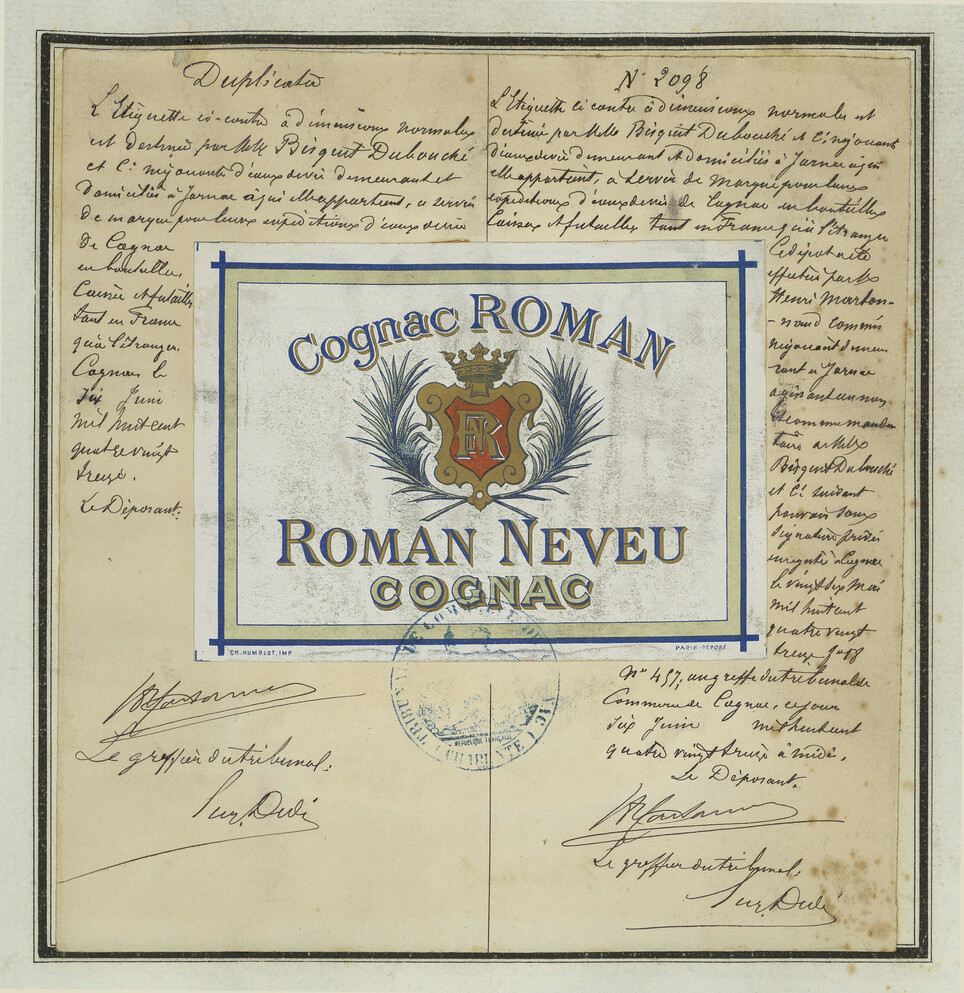 Duplicata
L'Etiquette ci-contre à dimensions normales
est destinée par MM Bisquit Dubouché
et Cie négociants d'eaux de vie demeurant et
domiciliés à Jarnac à qui elle appartient, à servir
de marque pour leurs expéditions d'eaux de vie
de Cognac
en bouteilles,
Caisses et futailles
tant en France
qu'à l'étranger.
Cognac le
dix Juin
mil huit cent
quatre vingt
treize.
Le Déposant.
Le greffier du tribunal:
N° 2098
L'Etiquette ci contre à dimensions normales est
destinée par MM Bisquit Dubouché et Cie, négociants
d'eaux de vie demeurant et domiciliés à Jarnac à qui
elle appartient, à servir de marque pour leurs
expéditions d'eaux de vie de Cognac en bouteilles
Caisses et futailles tant en France qu'à l'étranger
Ce dépôt a été
effectué par M
Henri
commis
négociant demeu
rant à Jarnac
agissant au nom
et comme manda
taire de MM
Bisquit Dubouché
et Cie suivant
pouvoir sous
signature privée
enregistré à Cognac
le vingt six Mai
mil huit cent
quatre vingt
treize
N° 457, au greffe du tribunal de
Commerce de Cognac, ce jour
dix Juin mil huit cent
quatre vingt treize à midi.
Le Déposant.
Le greffier du tribunal.
Cognac ROMAN
NR
ROMAN NEVEU
COGNAC
CH. HUMBLOT, IMP
PARIS-DÉPOSÉ
TRIBUNAL DE COMMERCE DE COGNAC
REPUBLIQUE FRANÇAISE
CHARENTE